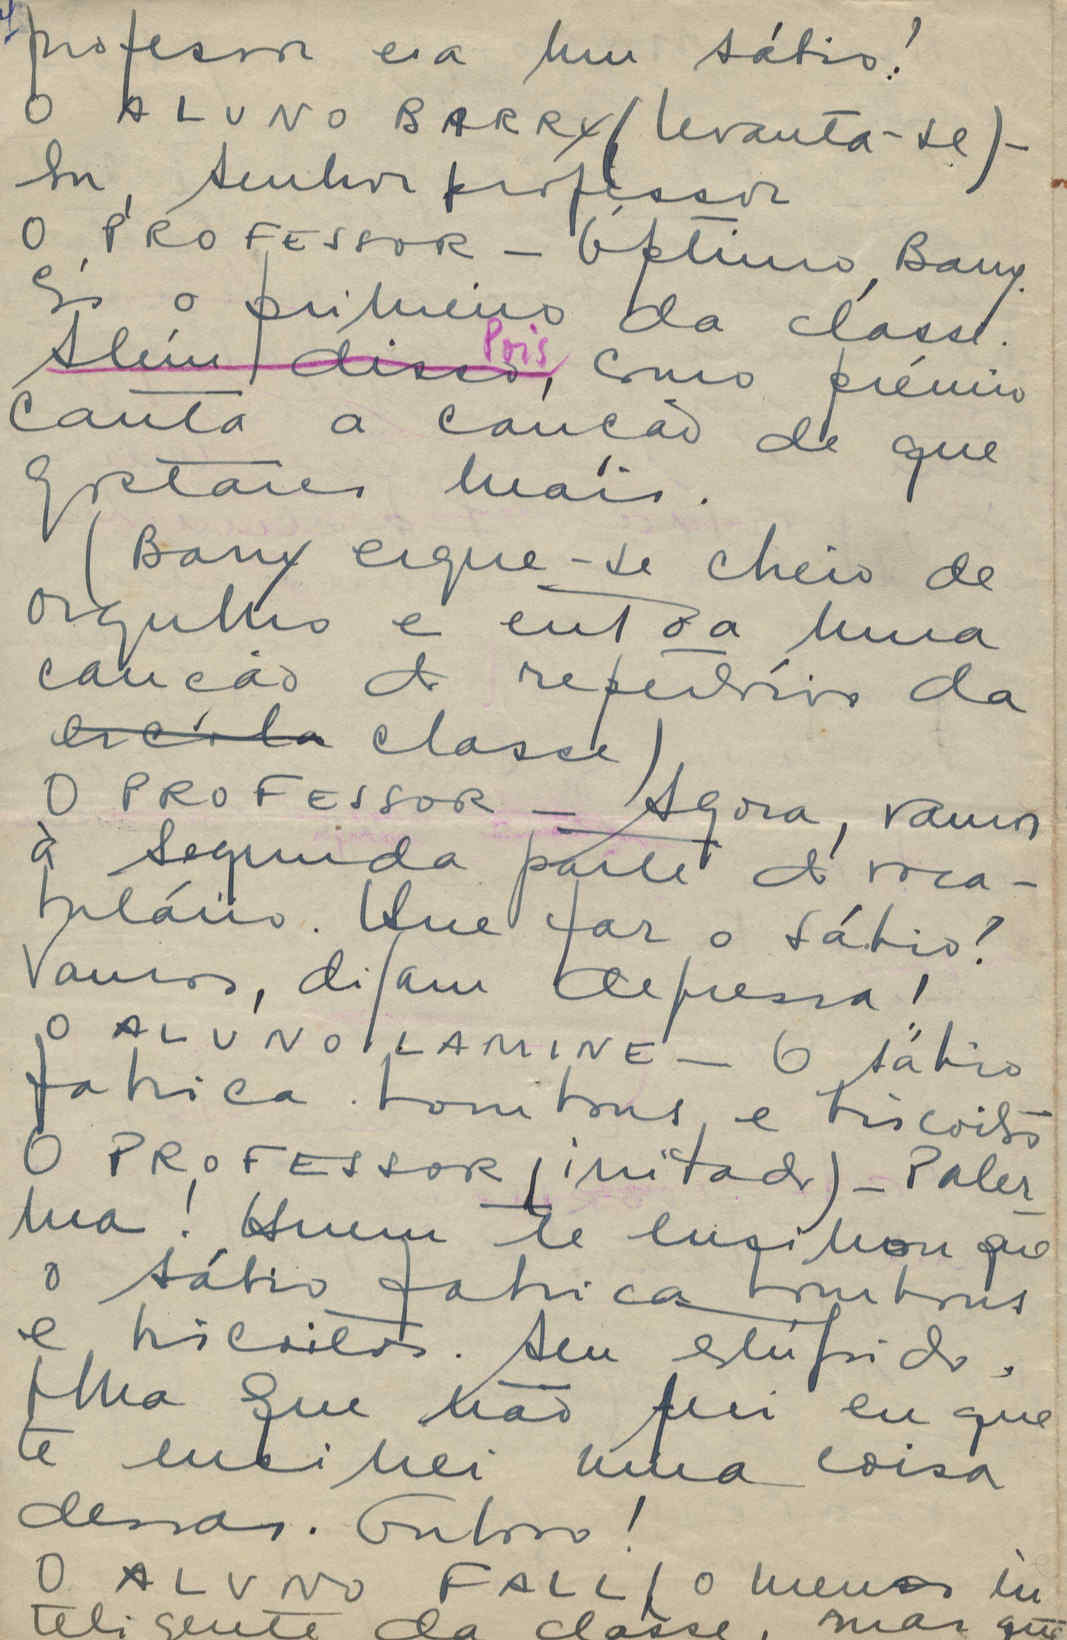 professor era um sábio!
O ALUNO BARRY (levanta-se) -
Eu, senhor professor
O PROFESSOR - Óptimo, Barry.
És o primeiro da classe.
Além disso, Pois, como prémio
canta a canção de que
gostares mais.
(Barry ergue-se cheio de
orgulho e entôa uma
canção do repertório da
escola classe)
O PROFESSOR - Agora, vamos
à segunda parte do voca-
bulário. Que faz o sábio?
Vamos, digam depressa!
O ALUNO LAMINE - O sábio
fabrica bombons e biscoitos
O PROFESSOR (irritado) - Paler-
ma! Quem te ensinou que
o sábio fabrica bombons
e biscoitos. Seu estúpido,
olha que não fui eu que
te ensinei uma coisa
dessas. Outro!
O ALUNO FALL (o menos in
teligente da classe, mas que